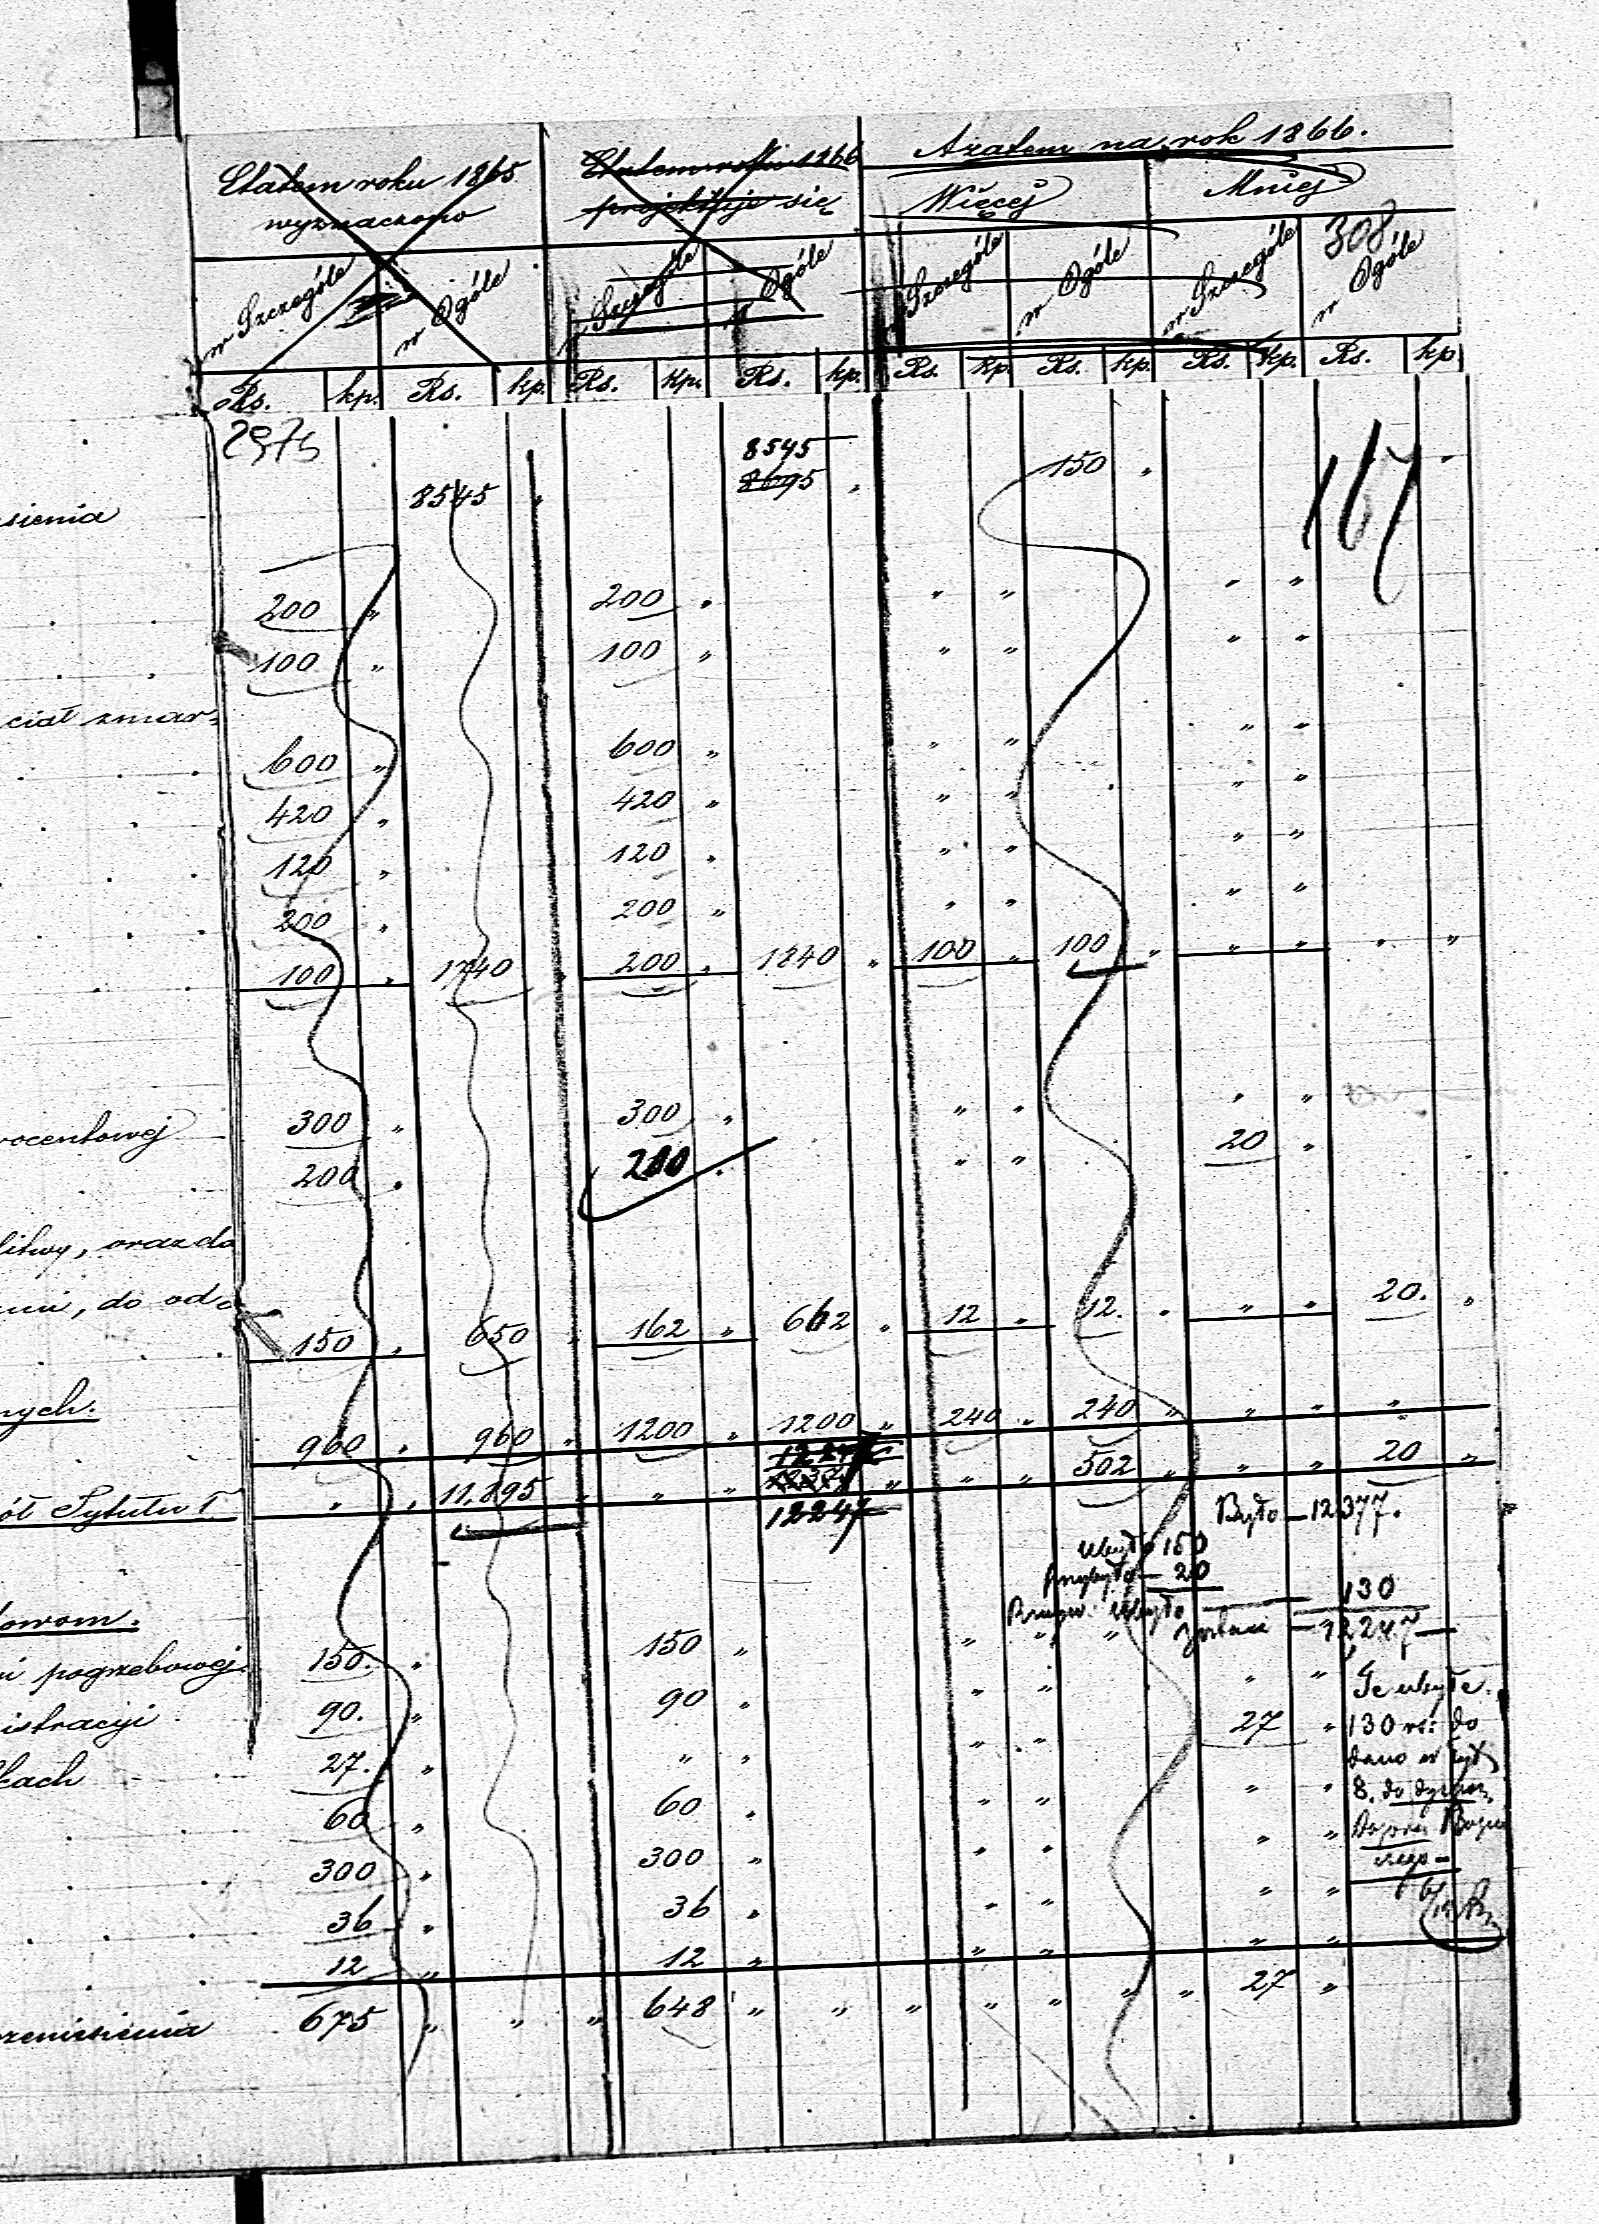 Etatem roku 1865 Etatem roku 1866 A zatem na rok 1866.
wyznaczono projektuje się Więcej Mniej
308
w Szczególe w Ogóle w Szczególe w Ogóle w Szczególe w Ogóle w Szczególe w Ogóle
Rs. kp. Rs. kp. Rs. kp. Rs. kp. Rs. kp. Rs. kp. Rs. kp. Rs. kp.
2975 8545 167
sienia 8545 " 8695 " 150 "
200 " 200 " " " " "
100 " 100 " " " " "
ciał zmar=
600 " 600 " " " " "
420 " 420 " " " " "
120 " 120 " " " " "
200 " 200 " " " " "
100 " 1740 200 " 1840 " 100 " 100 " " " " "
rocentowej 300 " 300 " " " " "
200 " 200 " " " 20 "
litwy, oraz do
ami, do od=
150 " 650 " 162 " 662 " 12 " 12. " " " 20. "
nych.
960 " 960 " 1200 " 1200 " 240 " 240 " " " "
ół Tytułu 1. " " 11,895 " " " 12247 " " " 502 " " " 20 "
Było — 12377.
ubyło 150
przybyło — 20
ubyło 130
zostaje — 12,247 —
dowom.
i pogrzebowej 150. " 150 " " " "
istracyi 90. " 90 " " " " "
Te ubyłe
kach 27. " " " " " 27 "
130 rs: do
dano w tyt
60 " 60 " " " " "
8. do dyspoz.
300 " 300 " " " " "
36 " 36 " " " " "
12 " 12 " " " " "
rzeniesienia 675 " " " 648 " " " " " " " 27 "